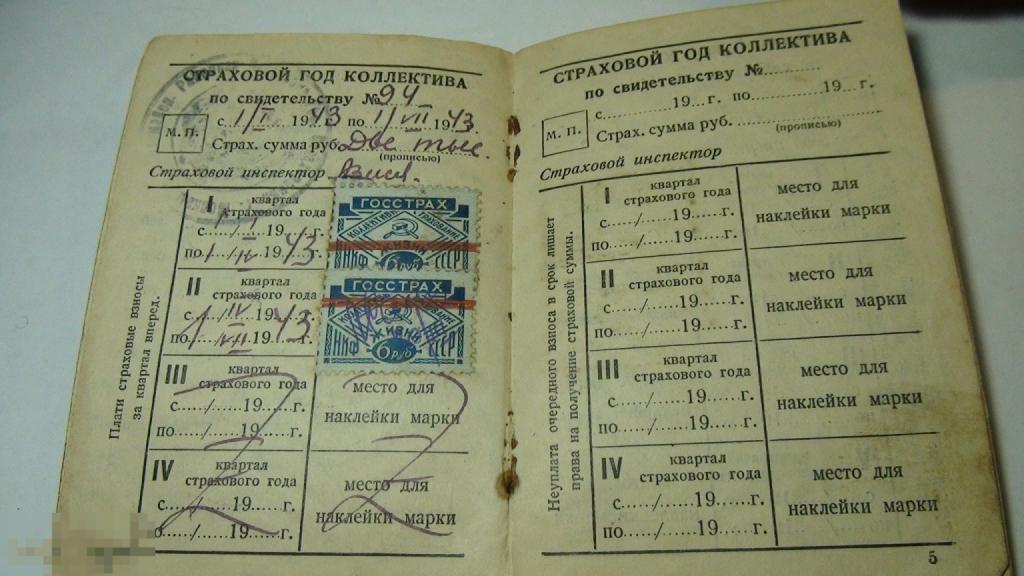 СТРАХОВОЙ ГОД КОЛЛЕКТИВА
по свидетельству № 94
с 1/I 1943 по 1/VII 1943.
М. П.
Страх. сумма руб. Две тыс.
(прописью)
Страховой инспектор
Плати страховые взносы
за квартал вперед.
I квартал
страхового года
с 1/I 19
по 1/IV 1943
II квартал
страхового года
с 1/IV 19
по 1/VII 1943
ГОССТРАХ
ЖИЗНИ
НКФ 6 руб СССР
ГОССТРАХ
ЖИЗНИ
НКФ 6 руб СССР
III квартал
страхового года
с...../......19.....г.
по...../.....19.....г.
место для
наклейки марки
IV квартал
страхового года
с...../......19.....г.
по...../.....19.....г.
место для
наклейки марки
СТРАХОВОЙ ГОД КОЛЛЕКТИВА
по свидетельству №..........
с............19...г. по............19...г.
М. П.
Страх. сумма руб. ....................
(прописью)
Страховой инспектор
Неуплата очередного взноса в срок лишает
права на получение страховой суммы.
I квартал
страхового года
с...../......19.....г.
по...../.....19.....г.
место для
наклейки марки
II квартал
страхового года
с...../......19.....г.
по...../.....19.....г.
место для
наклейки марки
III квартал
страхового года
с...../......19.....г.
по...../.....19.....г.
место для
наклейки марки
IV квартал
страхового года
с...../......19.....г.
по...../.....19.....г.
место для
наклейки марки
5